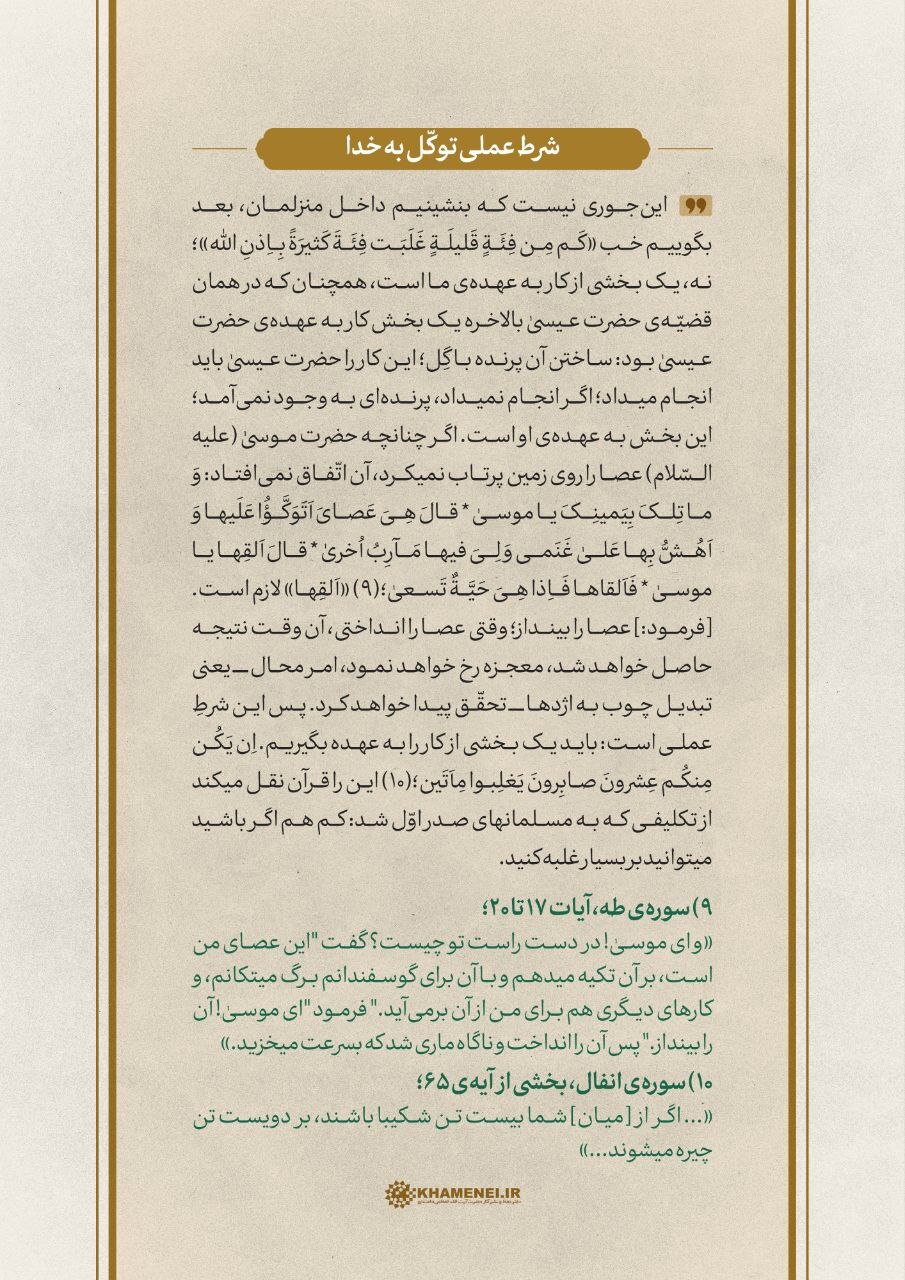 شرط عملی توکّل به خدا
این‌جوری نیست که بنشینیم داخل منزلمان، بعد
بگوییم خب «کَم مِن فِئَةٍ قَلیلَةٍ غَلَبَت فِئَةً کَثیرَةً بِاِذنِ الله»؛
نه، یک بخشی از کار به عهده‌ی ما است، همچنان که در همان
قضیّه‌ی حضرت عیسیٰ بالاخره یک بخش کار به عهده‌ی حضرت
عیسیٰ بود: ساختن آن پرنده با گِل؛ این کار را حضرت عیسیٰ باید
انجام میداد؛ اگر انجام نمیداد، پرنده‌ای به وجود نمی‌آمد؛
این بخش به عهده‌ی او است. اگر چنانچه حضرت موسیٰ (علیه
السّلام) عصا را روی زمین پرتاب نمیکرد، آن اتّفاق نمی‌افتاد: وَ
ما تِلکَ بِیَمینِکَ یا موسیٰ * قالَ هِیَ عَصایَ اَتَوَکَّؤُا عَلَیها وَ
اَهُشُّ بِها عَلیٰ غَنَمی وَلِیَ فیها مَآرِبُ اُخریٰ * قالَ اَلقِها یا
موسیٰ * فَاَلقاها فَاِذا هِیَ حَیَّةٌ تَسعیٰ؛(۹) «اَلقِها» لازم است.
[فرمود:] عصا را بینداز؛ وقتی عصا را انداختی، آن وقت نتیجه
حاصل خواهد شد، معجزه رخ خواهد نمود، امر محال ــ یعنی
تبدیل چوب به اژدها ــ تحقّق پیدا خواهد کرد. پس این شرطِ
عملی است: باید یک بخشی از کار را به عهده بگیریم. اِن یَکُن
مِنکُم عِشرونَ صابِرونَ یَغلِبوا مِاَتَین؛(۱۰) این را قرآن نقل میکند
از تکلیفی که به مسلمانهای صدر اوّل شد: کم هم اگر باشید
میتوانید بر بسیار غلبه کنید.
۹) سوره‌ی طه، آیات ۱۷ تا ۲۰؛
«و ای موسیٰ! در دست راست تو چیست؟ گفت "این عصای من
است، بر آن تکیه میدهم و با آن برای گوسفندانم برگ میتکانم، و
کارهای دیگری هم برای من از آن برمی‌آید." فرمود "ای موسیٰ! آن
را بینداز." پس آن را انداخت و ناگاه ماری شد که بسرعت میخزید.»
۱۰) سوره‌ی انفال، بخشی از آیه‌ی ۶۵؛
«... اگر از [میان] شما بیست تن شکیبا باشند، بر دویست تن
چیره میشوند...»
KHAMENEI.IR